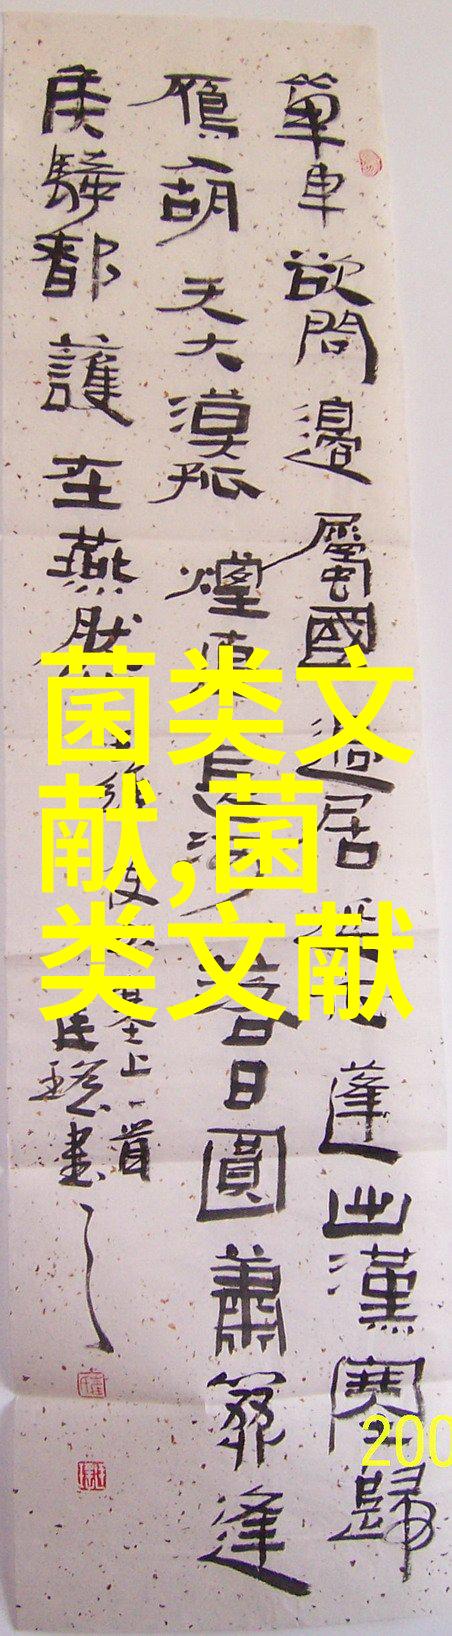 單車欲問邊屬國過居蓬出漢塞歸
鴈入胡天大漠孤煙直長河落日圓蕭關逢
侯騎都護在燕然
王維使至塞上一首
書
菌类文
献,菌
类文献
200